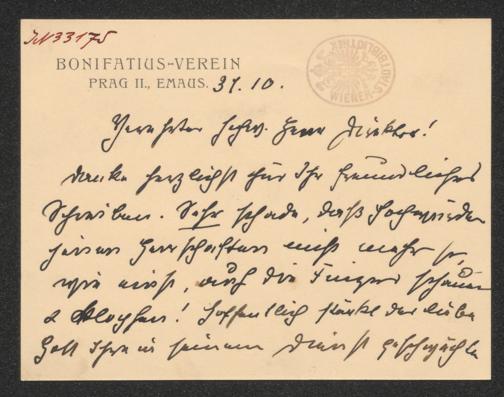 JN 33175
BONIFATIUS-VEREIN
PRAG II., EMAUS. 31.10.
WIENER STADTBIBLIOTHEK
Verehrter hchw. Herr Direktor!
danke herzlichst für Ihr freundliches
Schreiben. Sehr schade, daß
Herrschaften nicht mehr so,
wie einst, auf die Finger schauen
& klopfen! Hoffentlich stärkt der liebe
Gott Ihre in seinem Dienst geschwächte